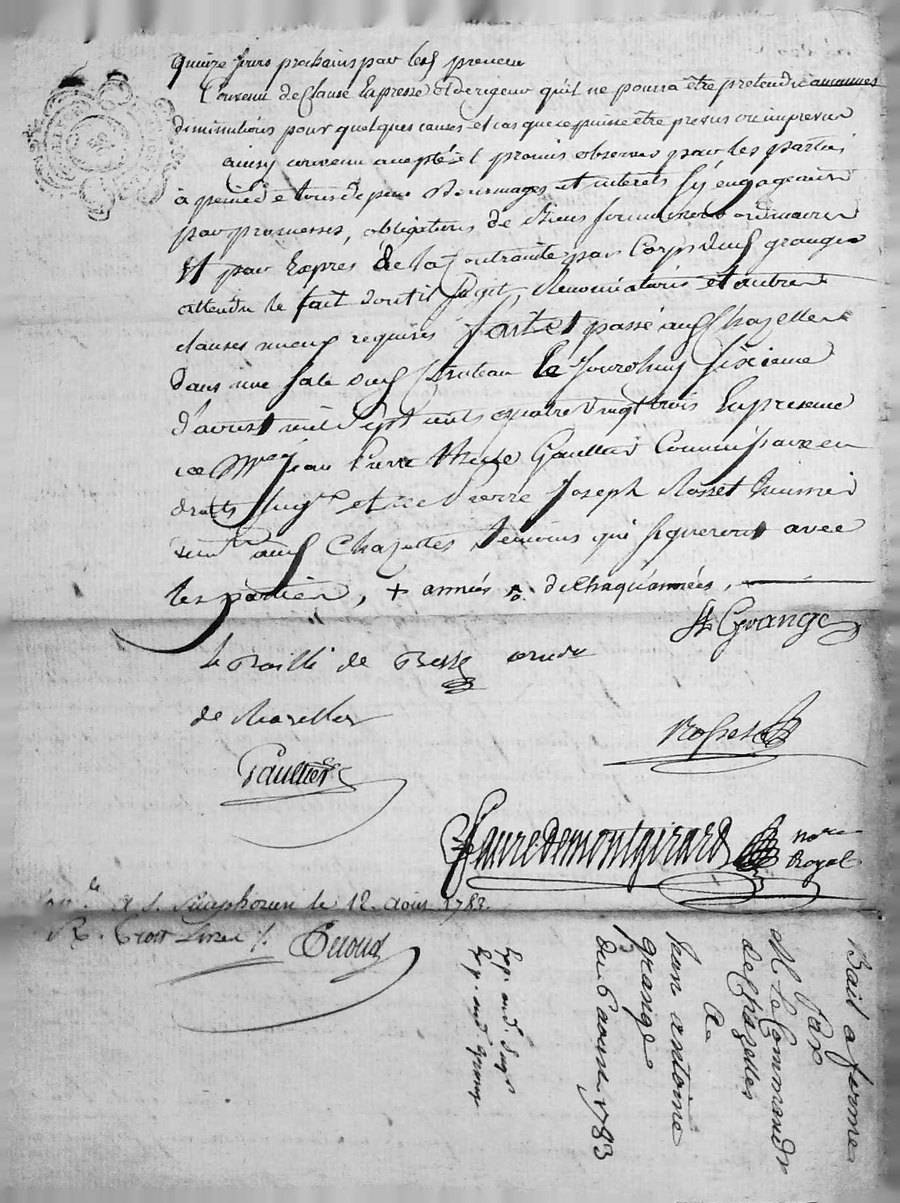 quinze jours prochains par les preneur
Convenu de Clause Expresse et de rigeur qu'il ne pourra être pretendre aucunnes
diminutions pour quelques causes et cas que ce puisse être prevus ou imprevus
ainsy convenu accepté et promis observer par les parties
à peine de tous depens dommages et interets s'y engageant
par promesses, obligations de biens soumissions ordinaires
Et par Exprès de la Contrainte par Corps dud. grange
attendu le fait dont il s'agit, Renonciations et autres
clauses mieux requises fait et passé aud. Chazelles
dans une sale dud. Chateau le jourdhuy sixieme
d'aoust mil sept cents quatre vingt trois En presence
de Mre Jean Pierre Gaultier Commissaire en
droits et de Pierre Joseph Rosset
aud Chazelles temoins qui signeront avec
les parties, + années de Chaque années,
A Grange
Le Bailli de
de Chazelles
Rosset
Gaultier
Faure de montgirard nore
Royal
à S. Simphorien le 12 Aoust 1783.
R. Livres
Bail a ferme
Par
M Le Commandr
de Chazelles
A
jean antoine
grange
du 6 aoust 1783